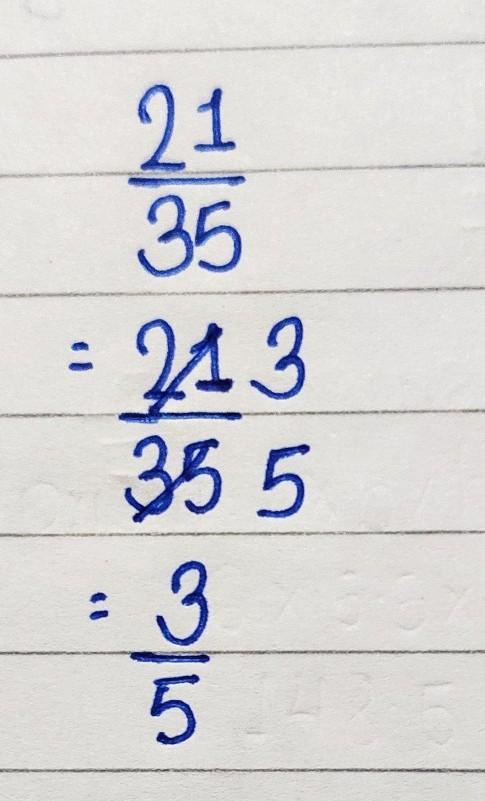 21
35
= 21 3
35 5
= 3
5